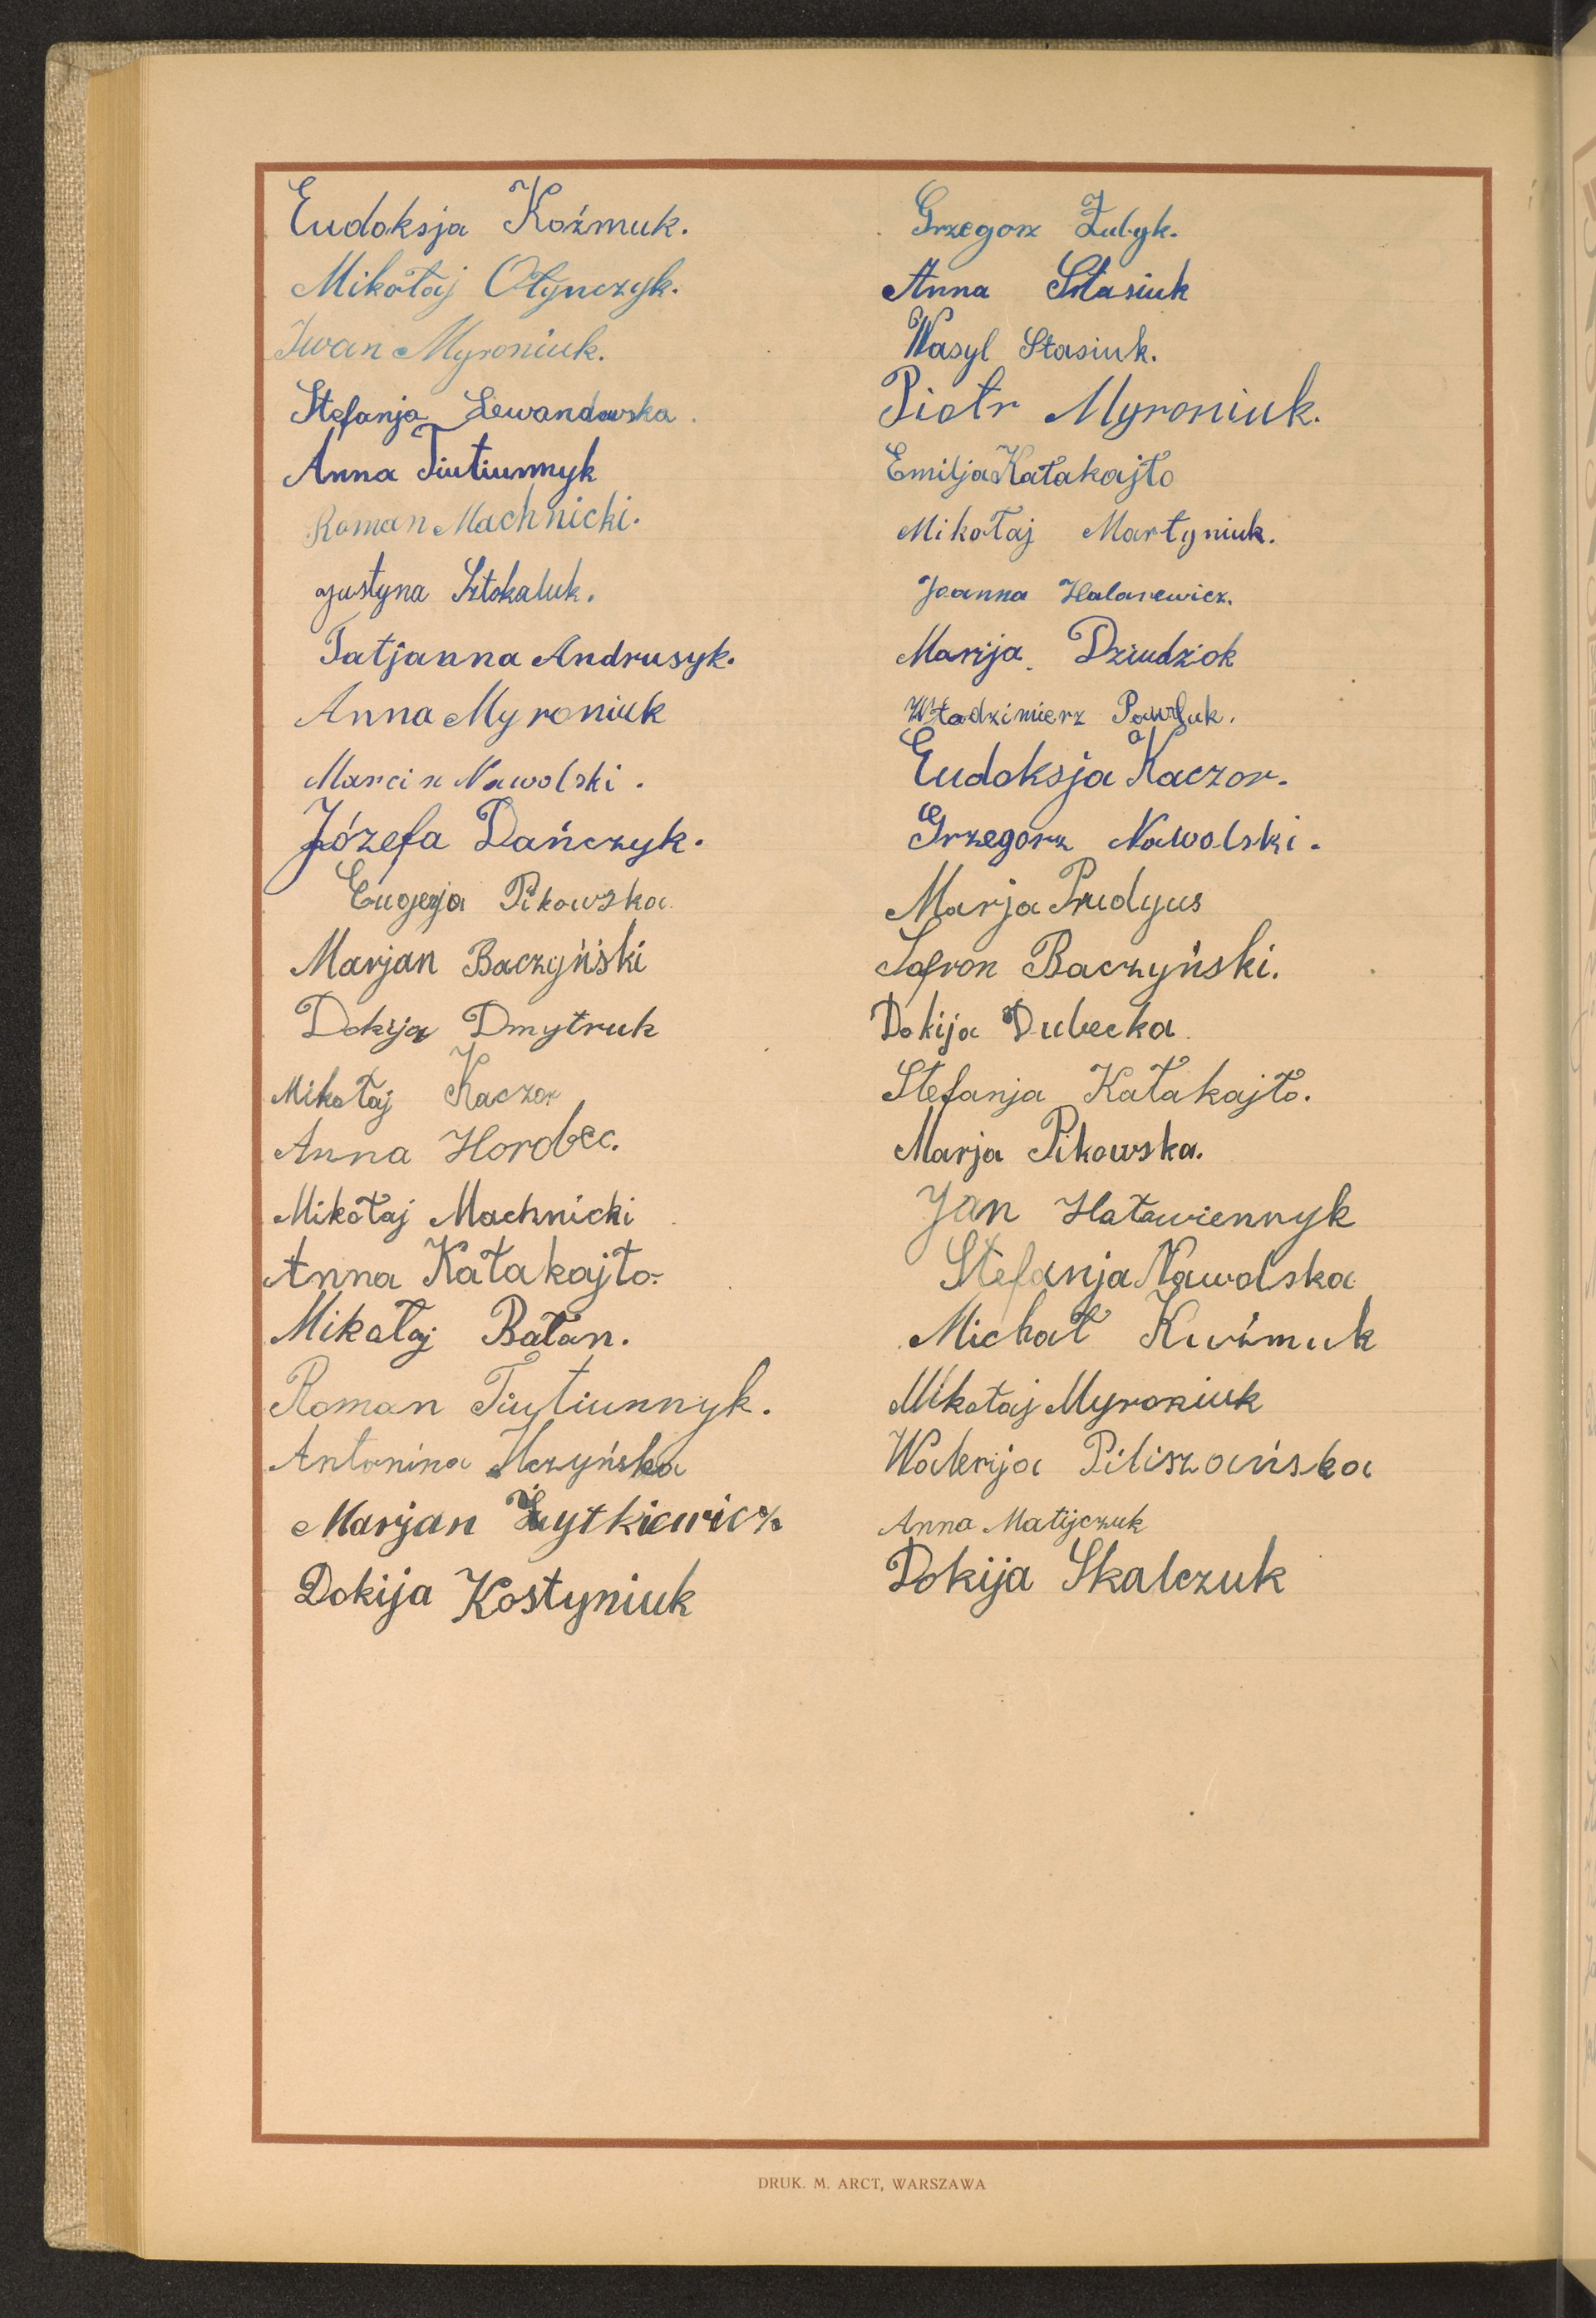 Eudoksja Koźmuk.
Mikołaj Ołynczyk.
Iwan Myroniuk.
Stefanja Lewandowska.
Anna Tiutiunnyk
Roman Machnicki.
Justyna Sztokaluk.
Tatjanna Andrusyk.
Anna Myroniuk
Marcin Nawolski.
Józefa Dańczyk.
Eugenja Pikowska
Marjan Baczyński
Dokija Dmytruk
Mikołaj Kaczor
Anna Horobec.
Mikołaj Machnicki
Anna Katakajło.
Mikołaj Bałan.
Roman Tiutiunnyk.
Antonina
Marjan Żytkiewicz
Dokija Kostyniuk
Grzegorz Zubyk.
Anna Stasiuk
Wasyl Stasiuk.
Piotr Myroniuk.
Emilja Katakajło
Mikołaj Martyniuk.
Joanna Halarewicz.
Marija Dziudziok
Włodzimierz Pawluk.
Eudoksja Kaczor.
Grzegorz Nawolski.
Marja Prudyus
Safron Baczyński.
Dokija Dubecka
Stefanja Katakajło.
Marja Pikowska.
Jan Hatawiennyk
Stefanja Nawolska
Michał Kuźmuk
Mikołaj Myroniuk
Walerija Piliszańska
Anna Matijczuk
Dokija Skalczuk
DRUK. M. ARCT, WARSZAWA